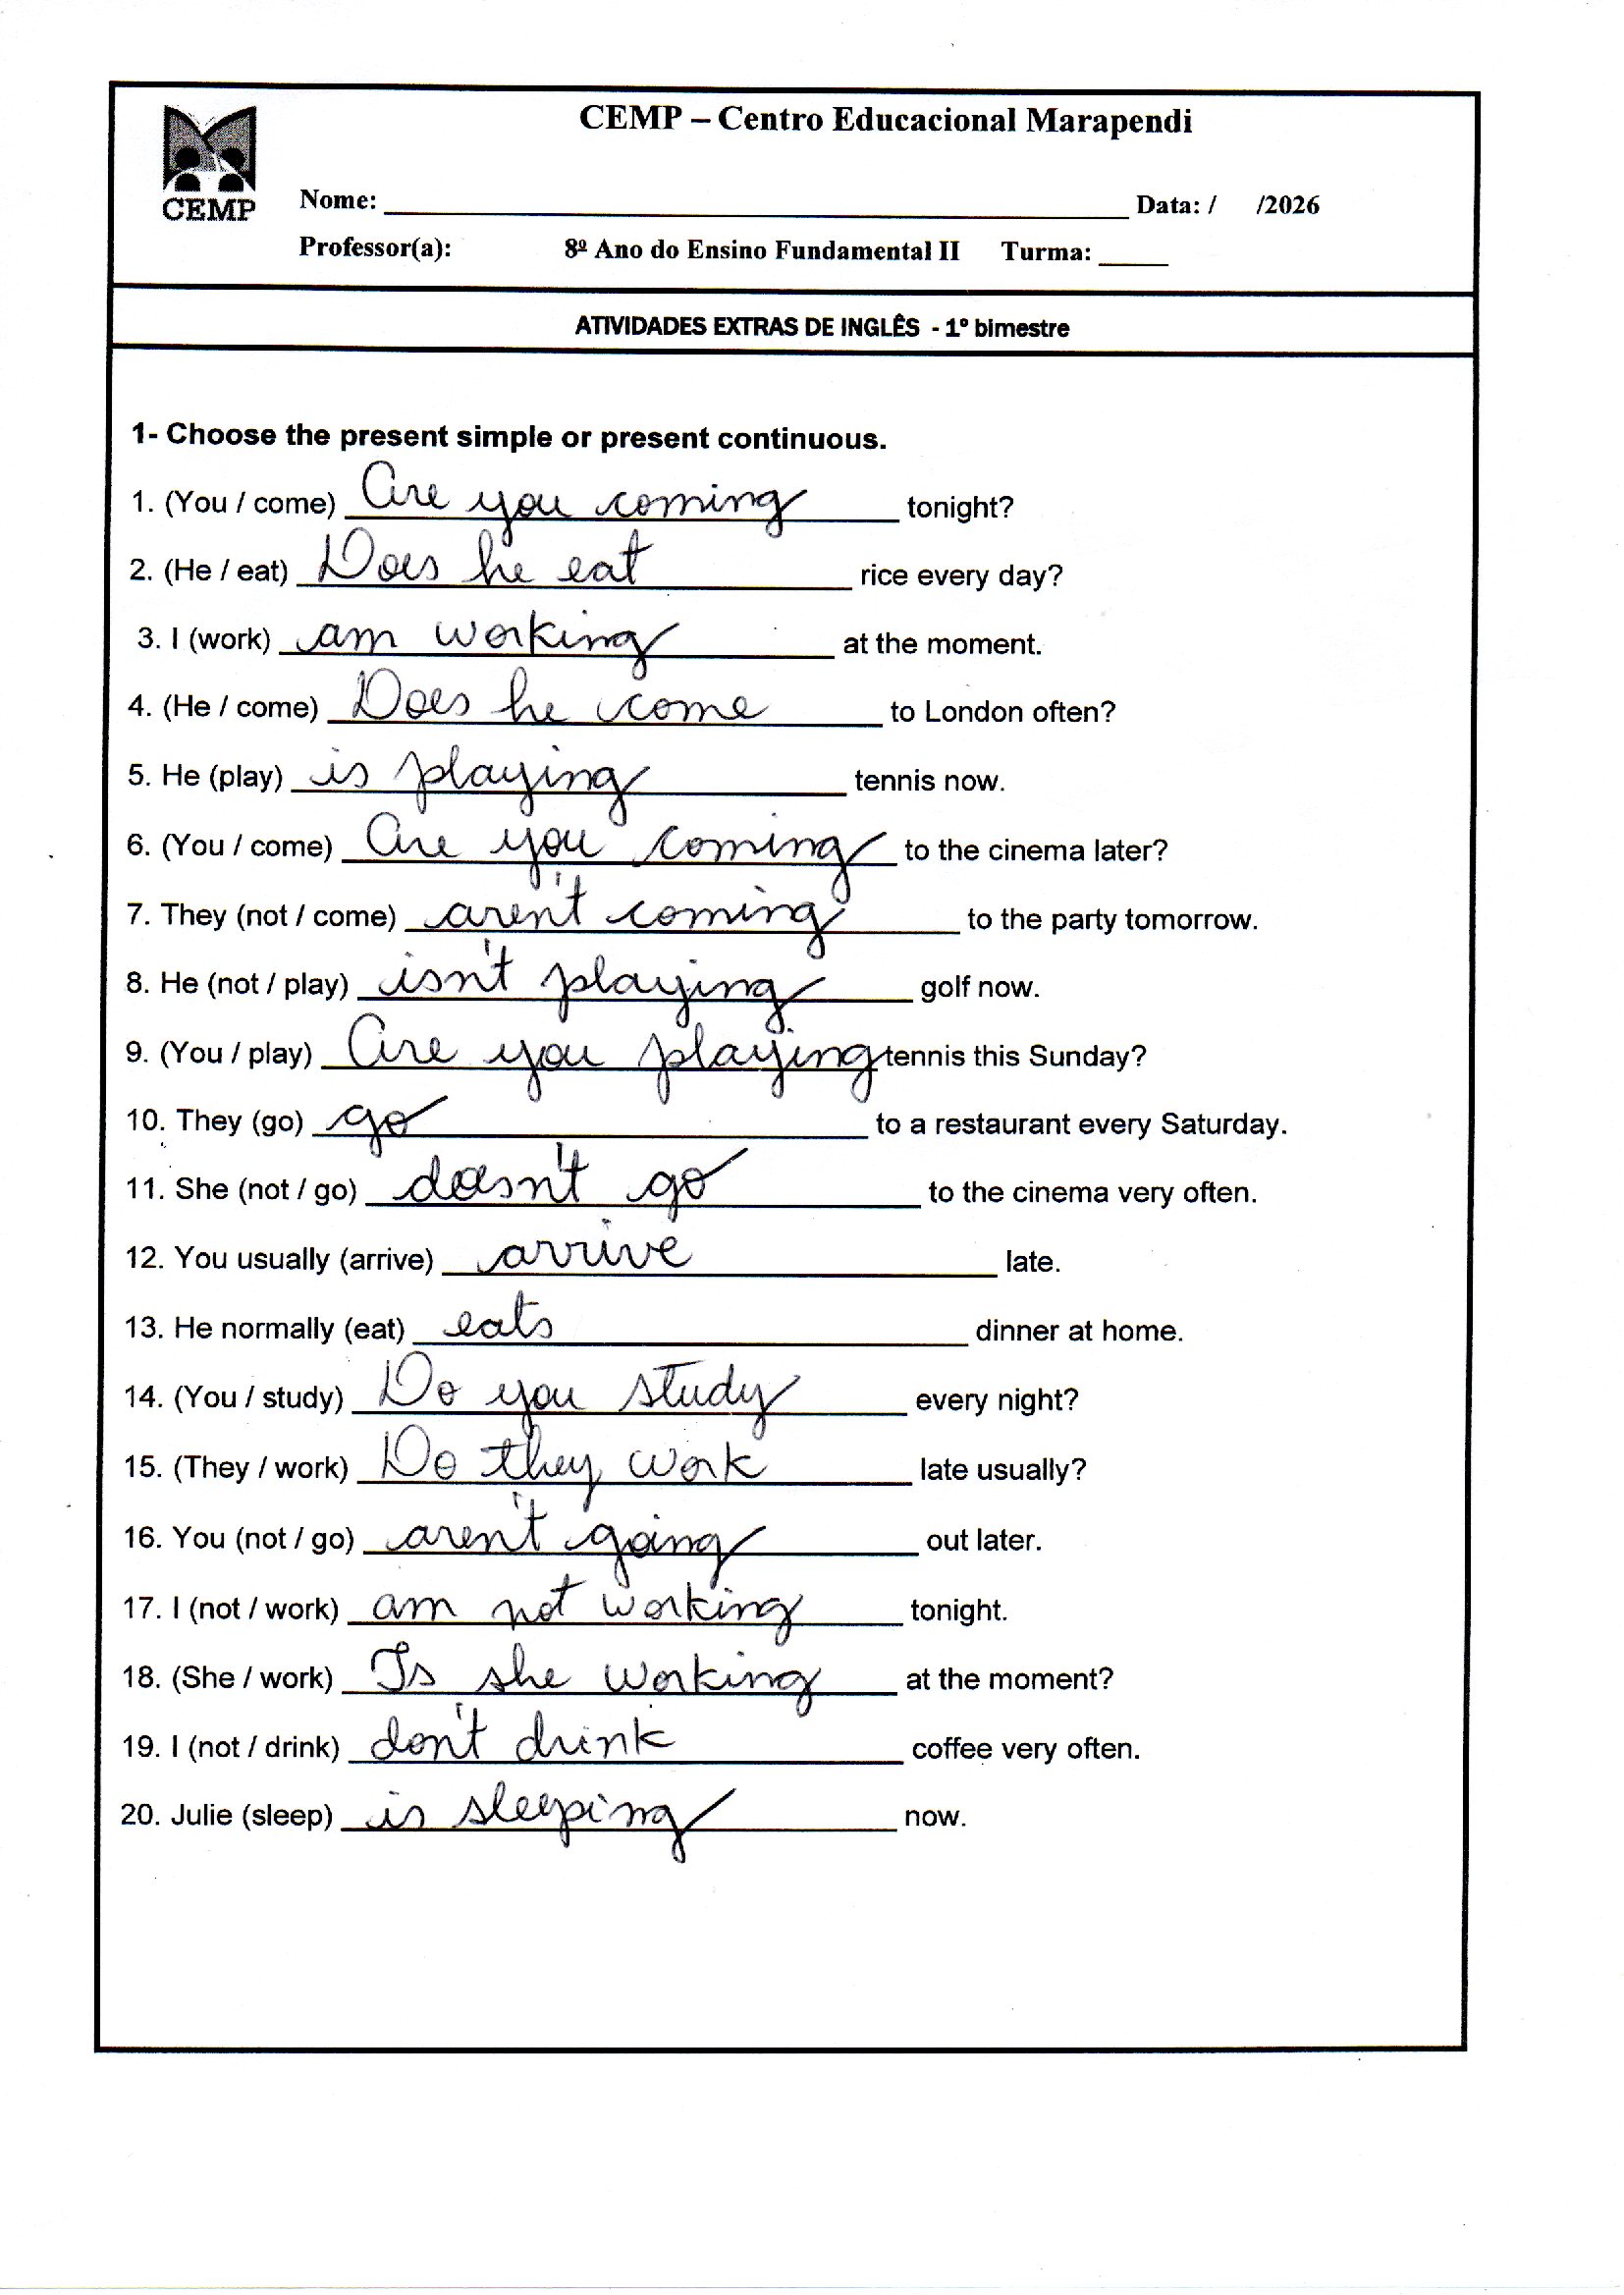 CEMP – Centro Educacional Marapendi
CEMP
Nome: ______ Data: / /2026
Professor(a): 8º Ano do Ensino Fundamental II Turma: ____
ATIVIDADES EXTRAS DE INGLÊS - 1º bimestre
1- Choose the present simple or present continuous.
1. (You / come) Are you coming tonight?
2. (He / eat) Does he eat rice every day?
3. I (work) am working at the moment.
4. (He / come) Does he come to London often?
5. He (play) is playing tennis now.
6. (You / come) Are you coming to the cinema later?
7. They (not / come) aren't coming to the party tomorrow.
8. He (not / play) isn't playing golf now.
9. (You / play) Are you playing tennis this Sunday?
10. They (go) go to a restaurant every Saturday.
11. She (not / go) doesn't go to the cinema very often.
12. You usually (arrive) arrive late.
13. He normally (eat) eats dinner at home.
14. (You / study) Do you study every night?
15. (They / work) Do they work late usually?
16. You (not / go) aren't going out later.
17. I (not / work) am not working tonight.
18. (She / work) Is she working at the moment?
19. I (not / drink) don't drink coffee very often.
20. Julie (sleep) is sleeping now.